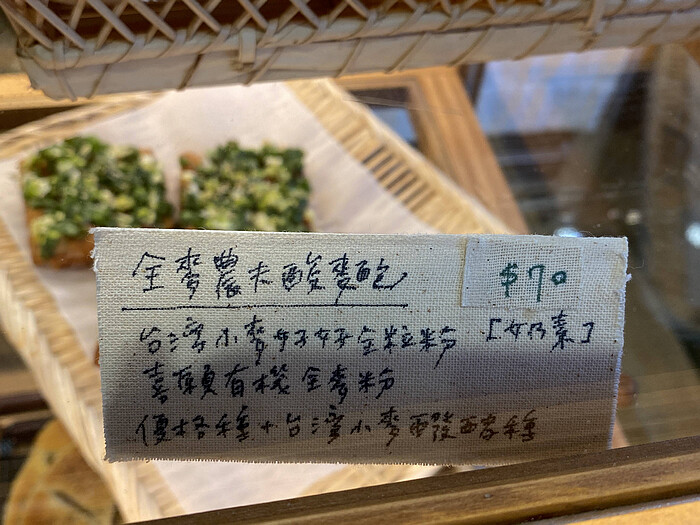 全麥農夫酸麵包 $70
台灣小麥好好全粒粉 [奶素]
喜願有機全麥粉
優格種+台灣小麥醱酵種